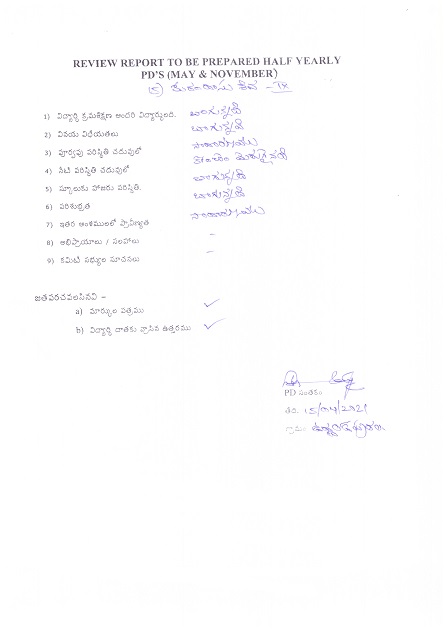 REVIEW REPORT TO BE PREPARED HALF YEARLY
PD'S (MAY & NOVEMBER)
(5) - IX
1) విద్యార్థి క్రమశిక్షణ అందరి విద్యార్థులది. బాగున్నది
2) వినయ విధేయతలు బాగున్నది
3) పూర్వపు పరిస్థితి చదువులో సాధారణము
4) నేటి పరిస్థితి చదువులో కొంచెం మెరుగైనది
5) స్కూలుకు హాజరు పరిస్థితి. బాగున్నది
6) పరిశుభ్రత బాగున్నది
7) ఇతర అంశములలో ప్రావీణ్యత సాధారణము
8) అభిప్రాయాలు / సలహాలు -
9) కమిటి సభ్యుల సూచనలు -
జతపరచవలసినవి –
a) మార్కుల పత్రము ✓
b) విద్యార్థి దాతకు వ్రాసిన ఉత్తరము ✓
PD సంతకం
తేది. 15/04/2021
గ్రామం